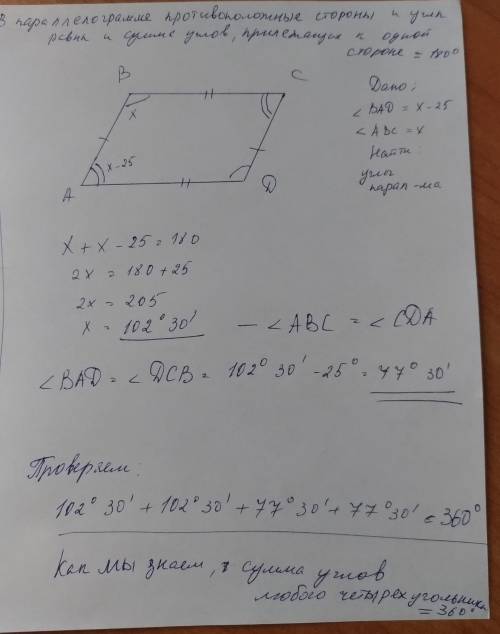 В параллелограмме противоположные стороны и углы
равны и сумма углов, прилежащих к одной
стороне = 180°
B
C
x
x-25
A
D
Дано:
∠BAD = x-25
∠ABC = x
Найти:
углы
парал-ма
x + x - 25 = 180
2x = 180 + 25
2x = 205
x = 102° 30' — ∠ABC = ∠CDA
∠BAD = ∠DCB = 102° 30' - 25° = 77° 30'
Проверяем:
102° 30' + 102° 30' + 77° 30' + 77° 30' = 360°
Как мы знаем, сумма углов
любого четырехугольника
= 360°